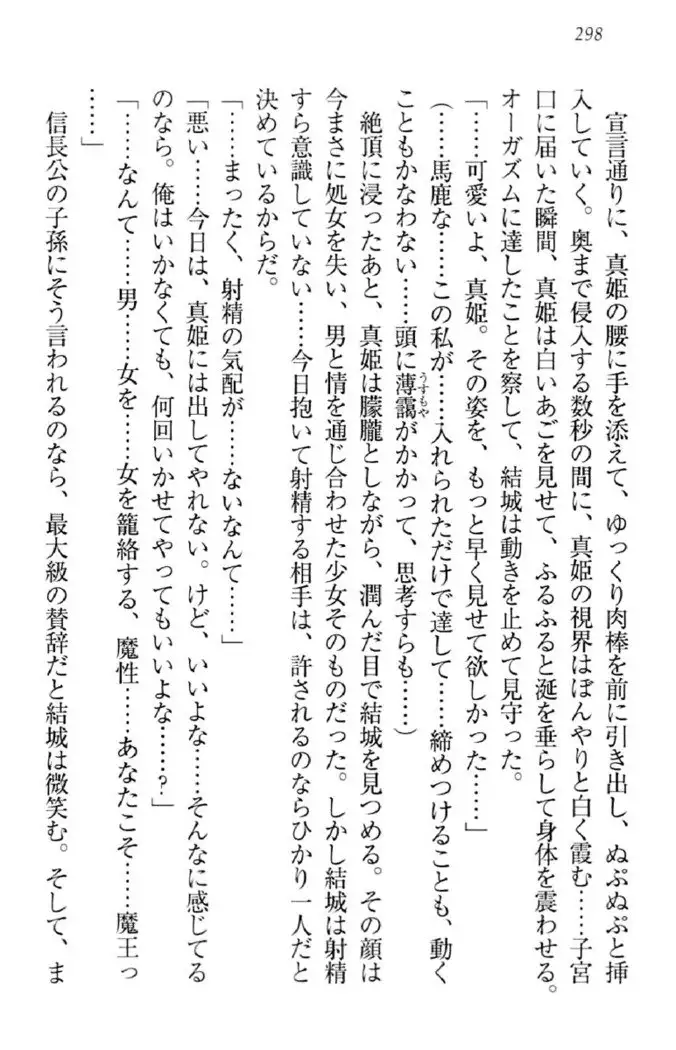 298
宣言通りに、真姫の腰に手を添えて、ゆっくり肉棒を前に引き出し、ぬぷぬぷと挿
入していく。奥まで侵入する数秒の間に、真姫の視界はぼんやりと白く霞む……子宮
口に届いた瞬間、真姫は白いあごを見せて、ふるふると涎を垂らして身体を震わせる。
オーガズムに達したことを察して、結城は動きを止めて見守った。
「……可愛いよ、真姫。その姿を、もっと早く見せて欲しかった……」
(……馬鹿な……この私が……入れられただけで達して……締めつけることも、動く
こともかなわない……頭に薄靄がかかって、思考すらも……)
うすもや
絶頂に浸ったあと、真姫は朦朧としながら、潤んだ目で結城を見つめる。その顔は
今まさに処女を失い、男と情を通じ合わせた少女そのものだった。しかし結城は射精
すら意識していない……今日抱いて射精する相手は、許されるのならひかり一人だと
決めているからだ。
「……まったく、射精の気配が……ないなんて……」
「悪い……今日は、真姫には出してやれない。けど、いいよな……そんなに感じてる
のなら。俺はいかなくても、何回いかせてやってもいいよな……?」
「……なんて……男……女を……女を籠絡する、魔性……あなたこそ……魔王っ
……」
信長公の子孫にそう言われるのなら、最大級の賛辞だと結城は微笑む。そして、ま